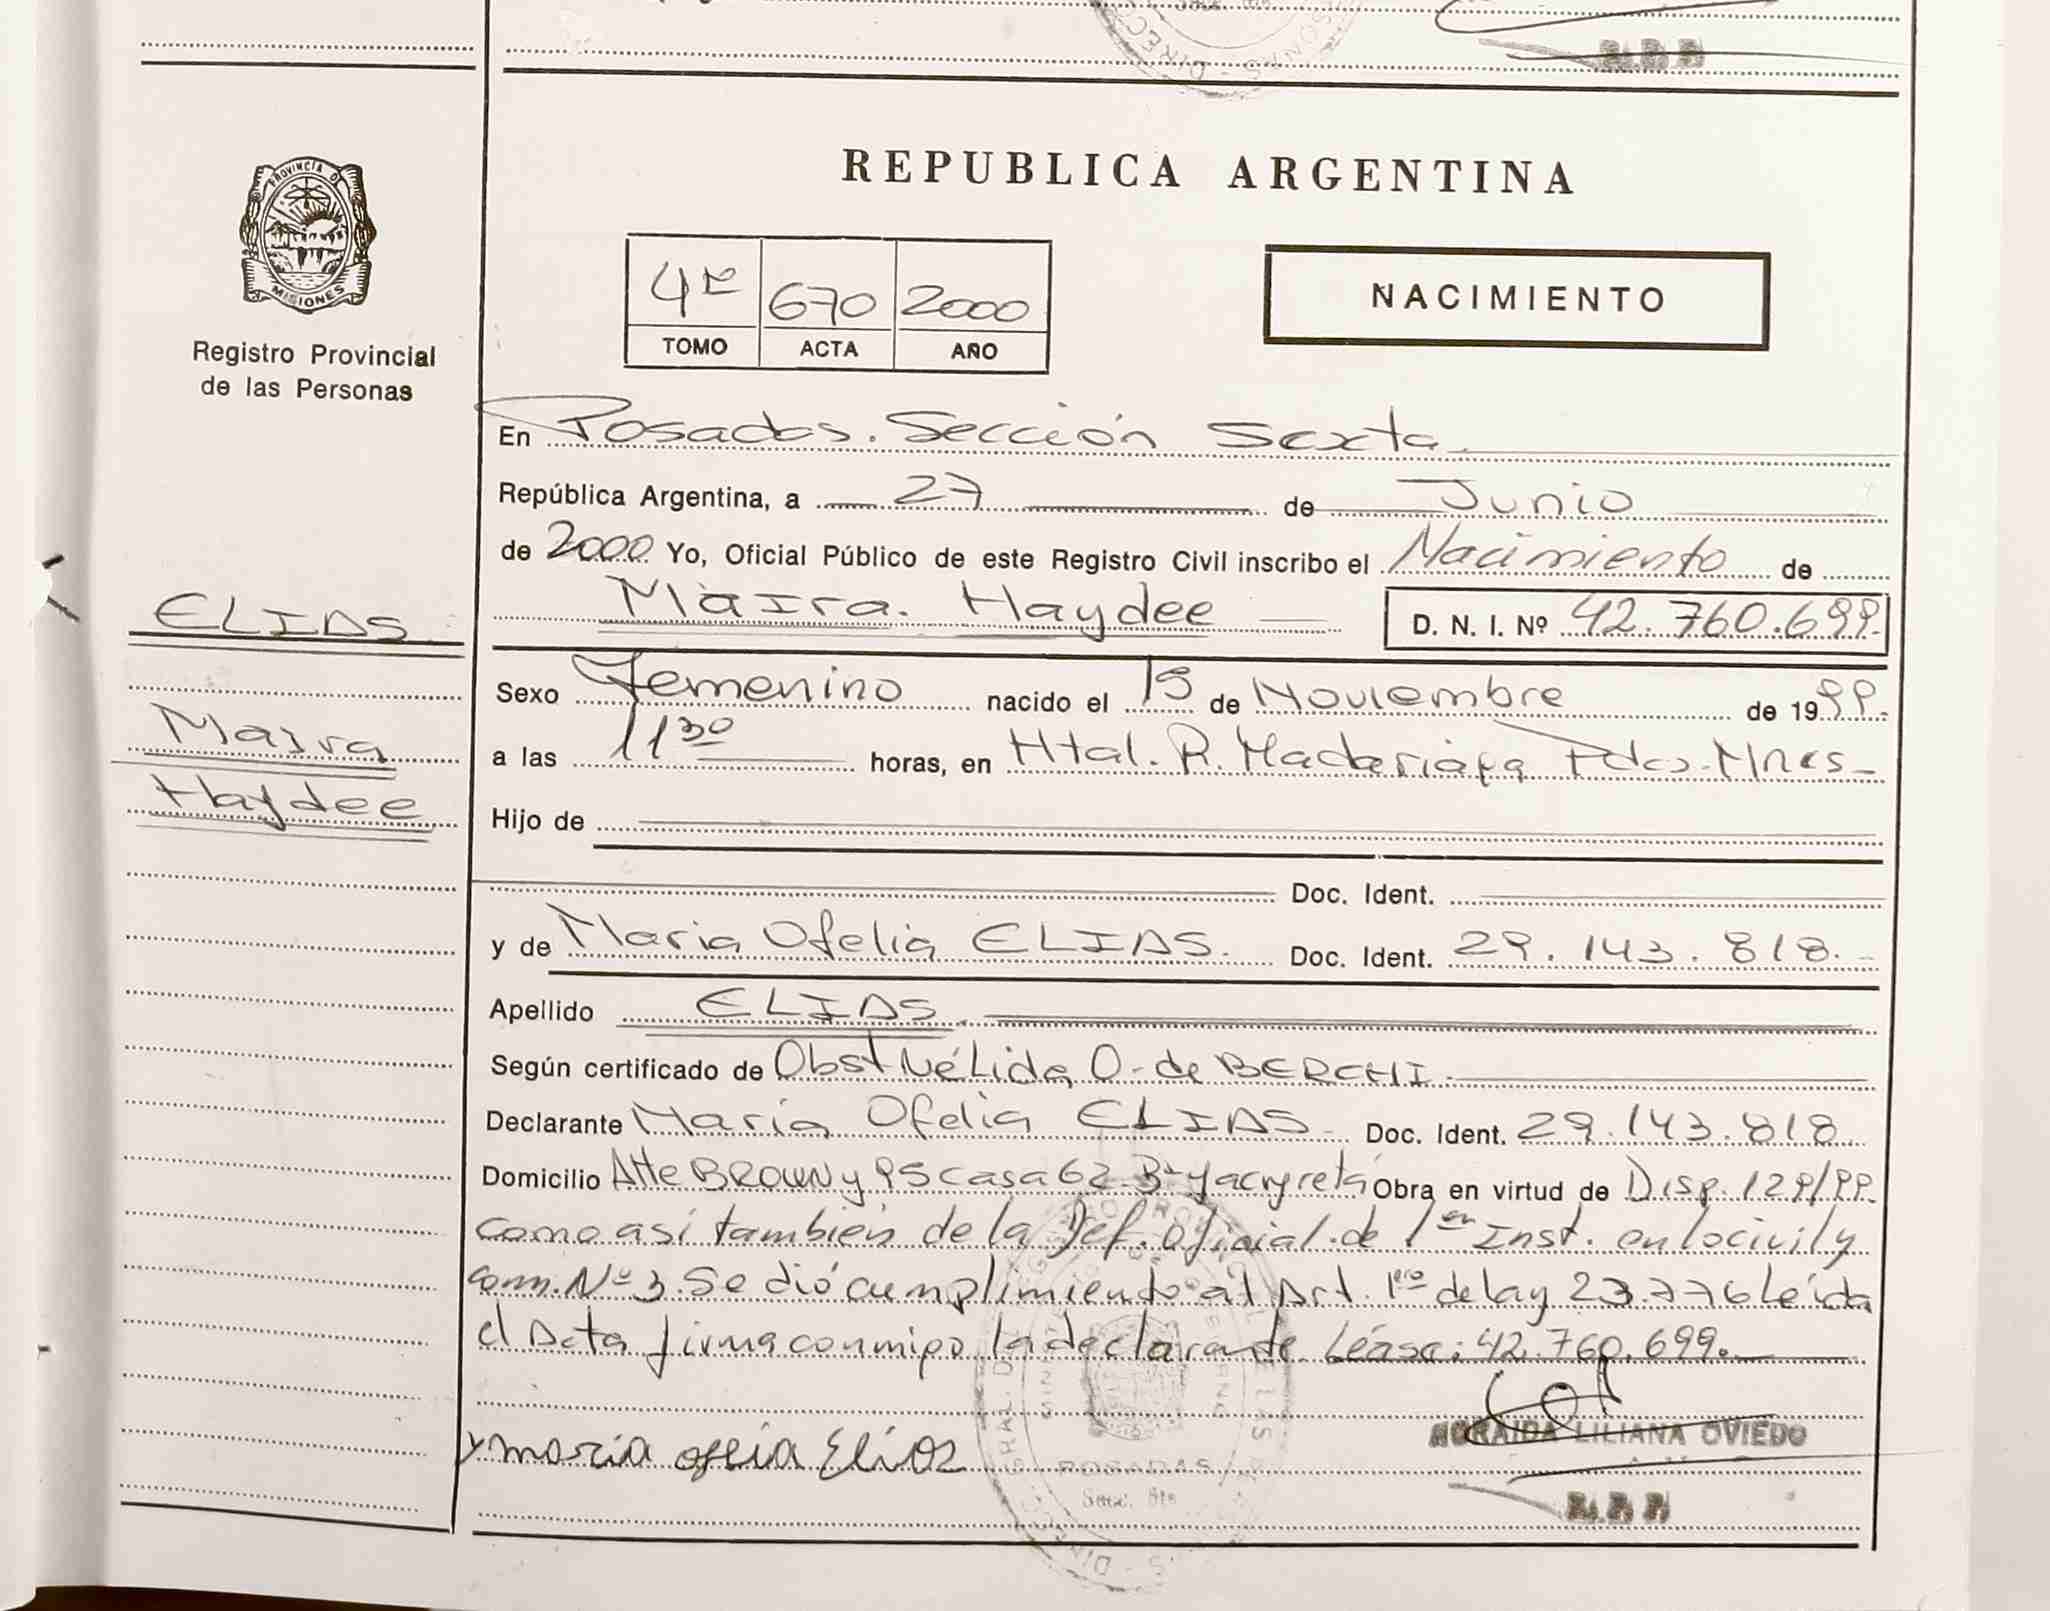 REPUBLICA ARGENTINA
PROVINCIA DE
MISIONES
Registro Provincial
de las Personas
4º 670 2000
TOMO ACTA AÑO
NACIMIENTO
En Posadas. Sección Sexta
República Argentina, a 27 de Junio
de 2000 Yo, Oficial Público de este Registro Civil inscribo el Nacimiento de
Maira Haydee D. N. I. Nº 42.760.699.
ELIAS
Maira
Haydee
Sexo Femenino nacido el 19 de Noviembre de 1999.
a las 11 30 horas, en Htal. R. Madariaga Pdas. Mnes
Hijo de
Doc. Ident.
y de Maria Ofelia ELIAS. Doc. Ident. 29.143.818.
Apellido ELIAS.
Según certificado de Obst Nélida O. de BERCHI
Declarante María Ofelia ELIAS. Doc. Ident. 29.143.818.
Domicilio Alte BROWN y 95 casa 62 Bº Yacyretá Obra en virtud de Disp. 129/99.
como así también de la Def. Oficial de 1er Inst. en lo civil y
com. Nº 3. Se dió cumplimiento al Art. 1ro de ley 23.776 Leída
el Acta firma conmigo la declarante Léase: 42.760.699.
NORAIDA LILIANA OVIEDO
maria ofelia Elias
POSADAS
Secc. 6ta
R.P.P.